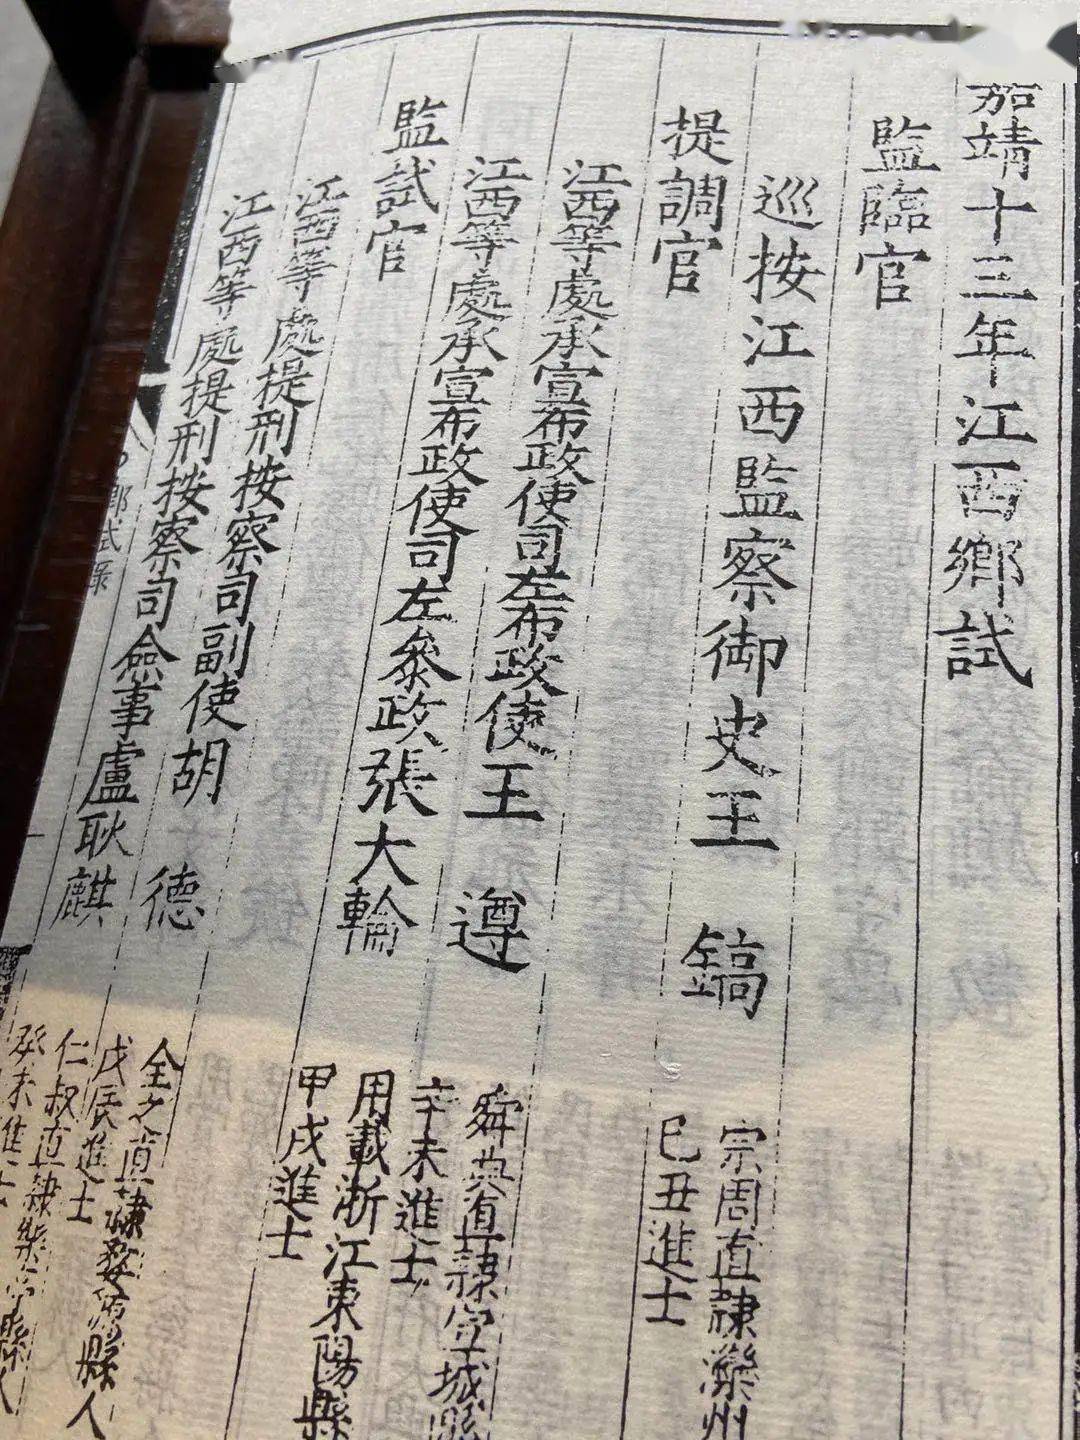 嘉靖十三年江西鄉試
監臨官
巡按江西監察御史王鎬
宗周直隸灤州
己丑進士
提調官
江西等處承宣布政使司左布政使王遵
舜典直隸宣城縣
辛未進士
江西等處承宣布政使司左參政張大輪
用載浙江東陽縣
甲戌進士
監試官
江西等處提刑按察司副使胡德
全之直隸婺源縣人
戊辰進士
江西等處提刑按察司僉事盧耿麒
仁叔直隸樂亭縣人
癸未進士
鄉試錄